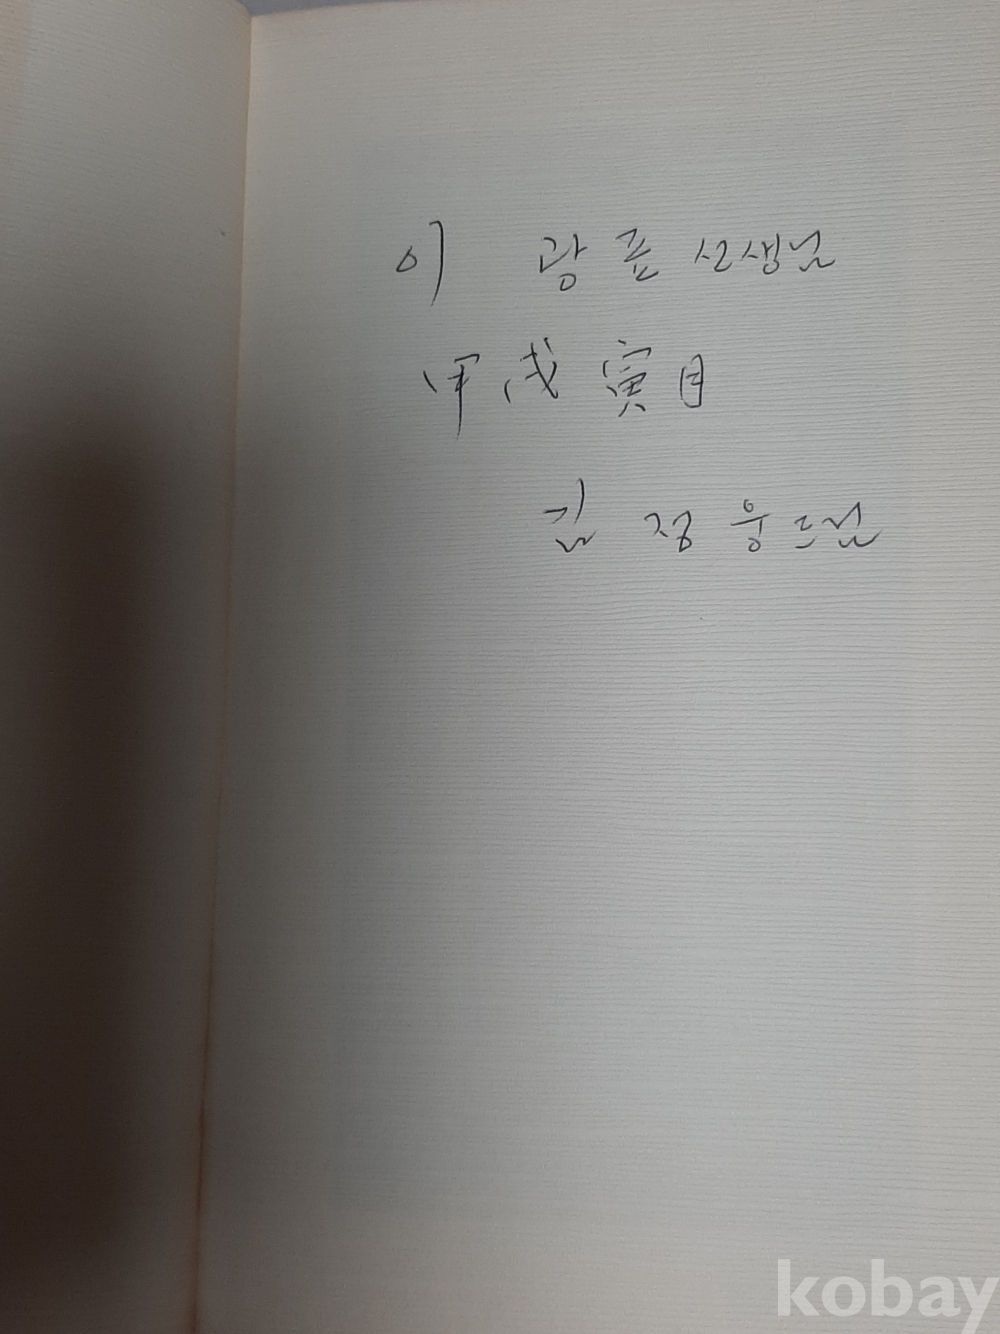 이 광표 선생님
甲戌 寅月
김 정웅 드림
kobay